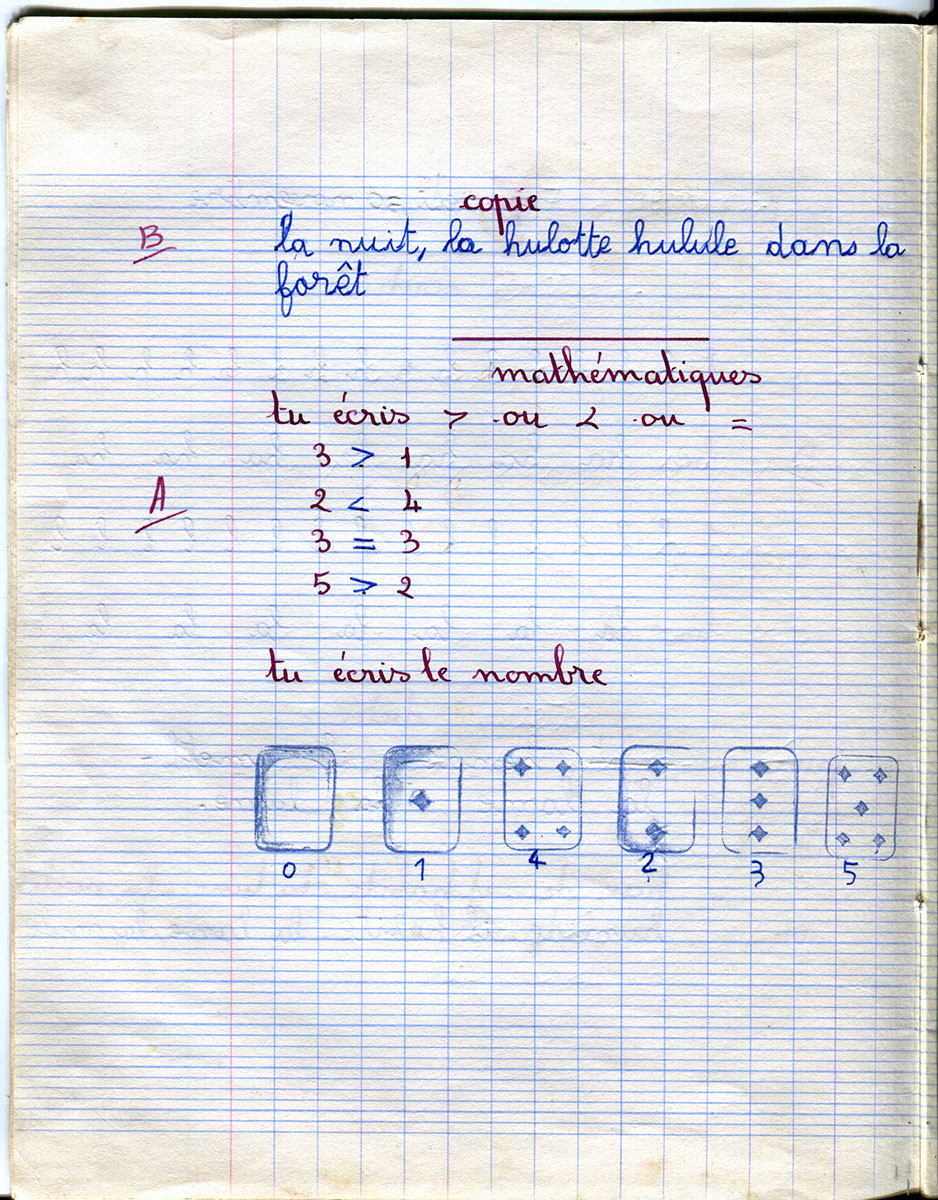 copie
B
la nuit, la hulotte hulule dans la
forêt
mathématiques
tu écris > ou < ou =
3 > 1
A
2 < 4
3 = 3
5 > 2
tu écris le nombre
0 1 4 2 3 5